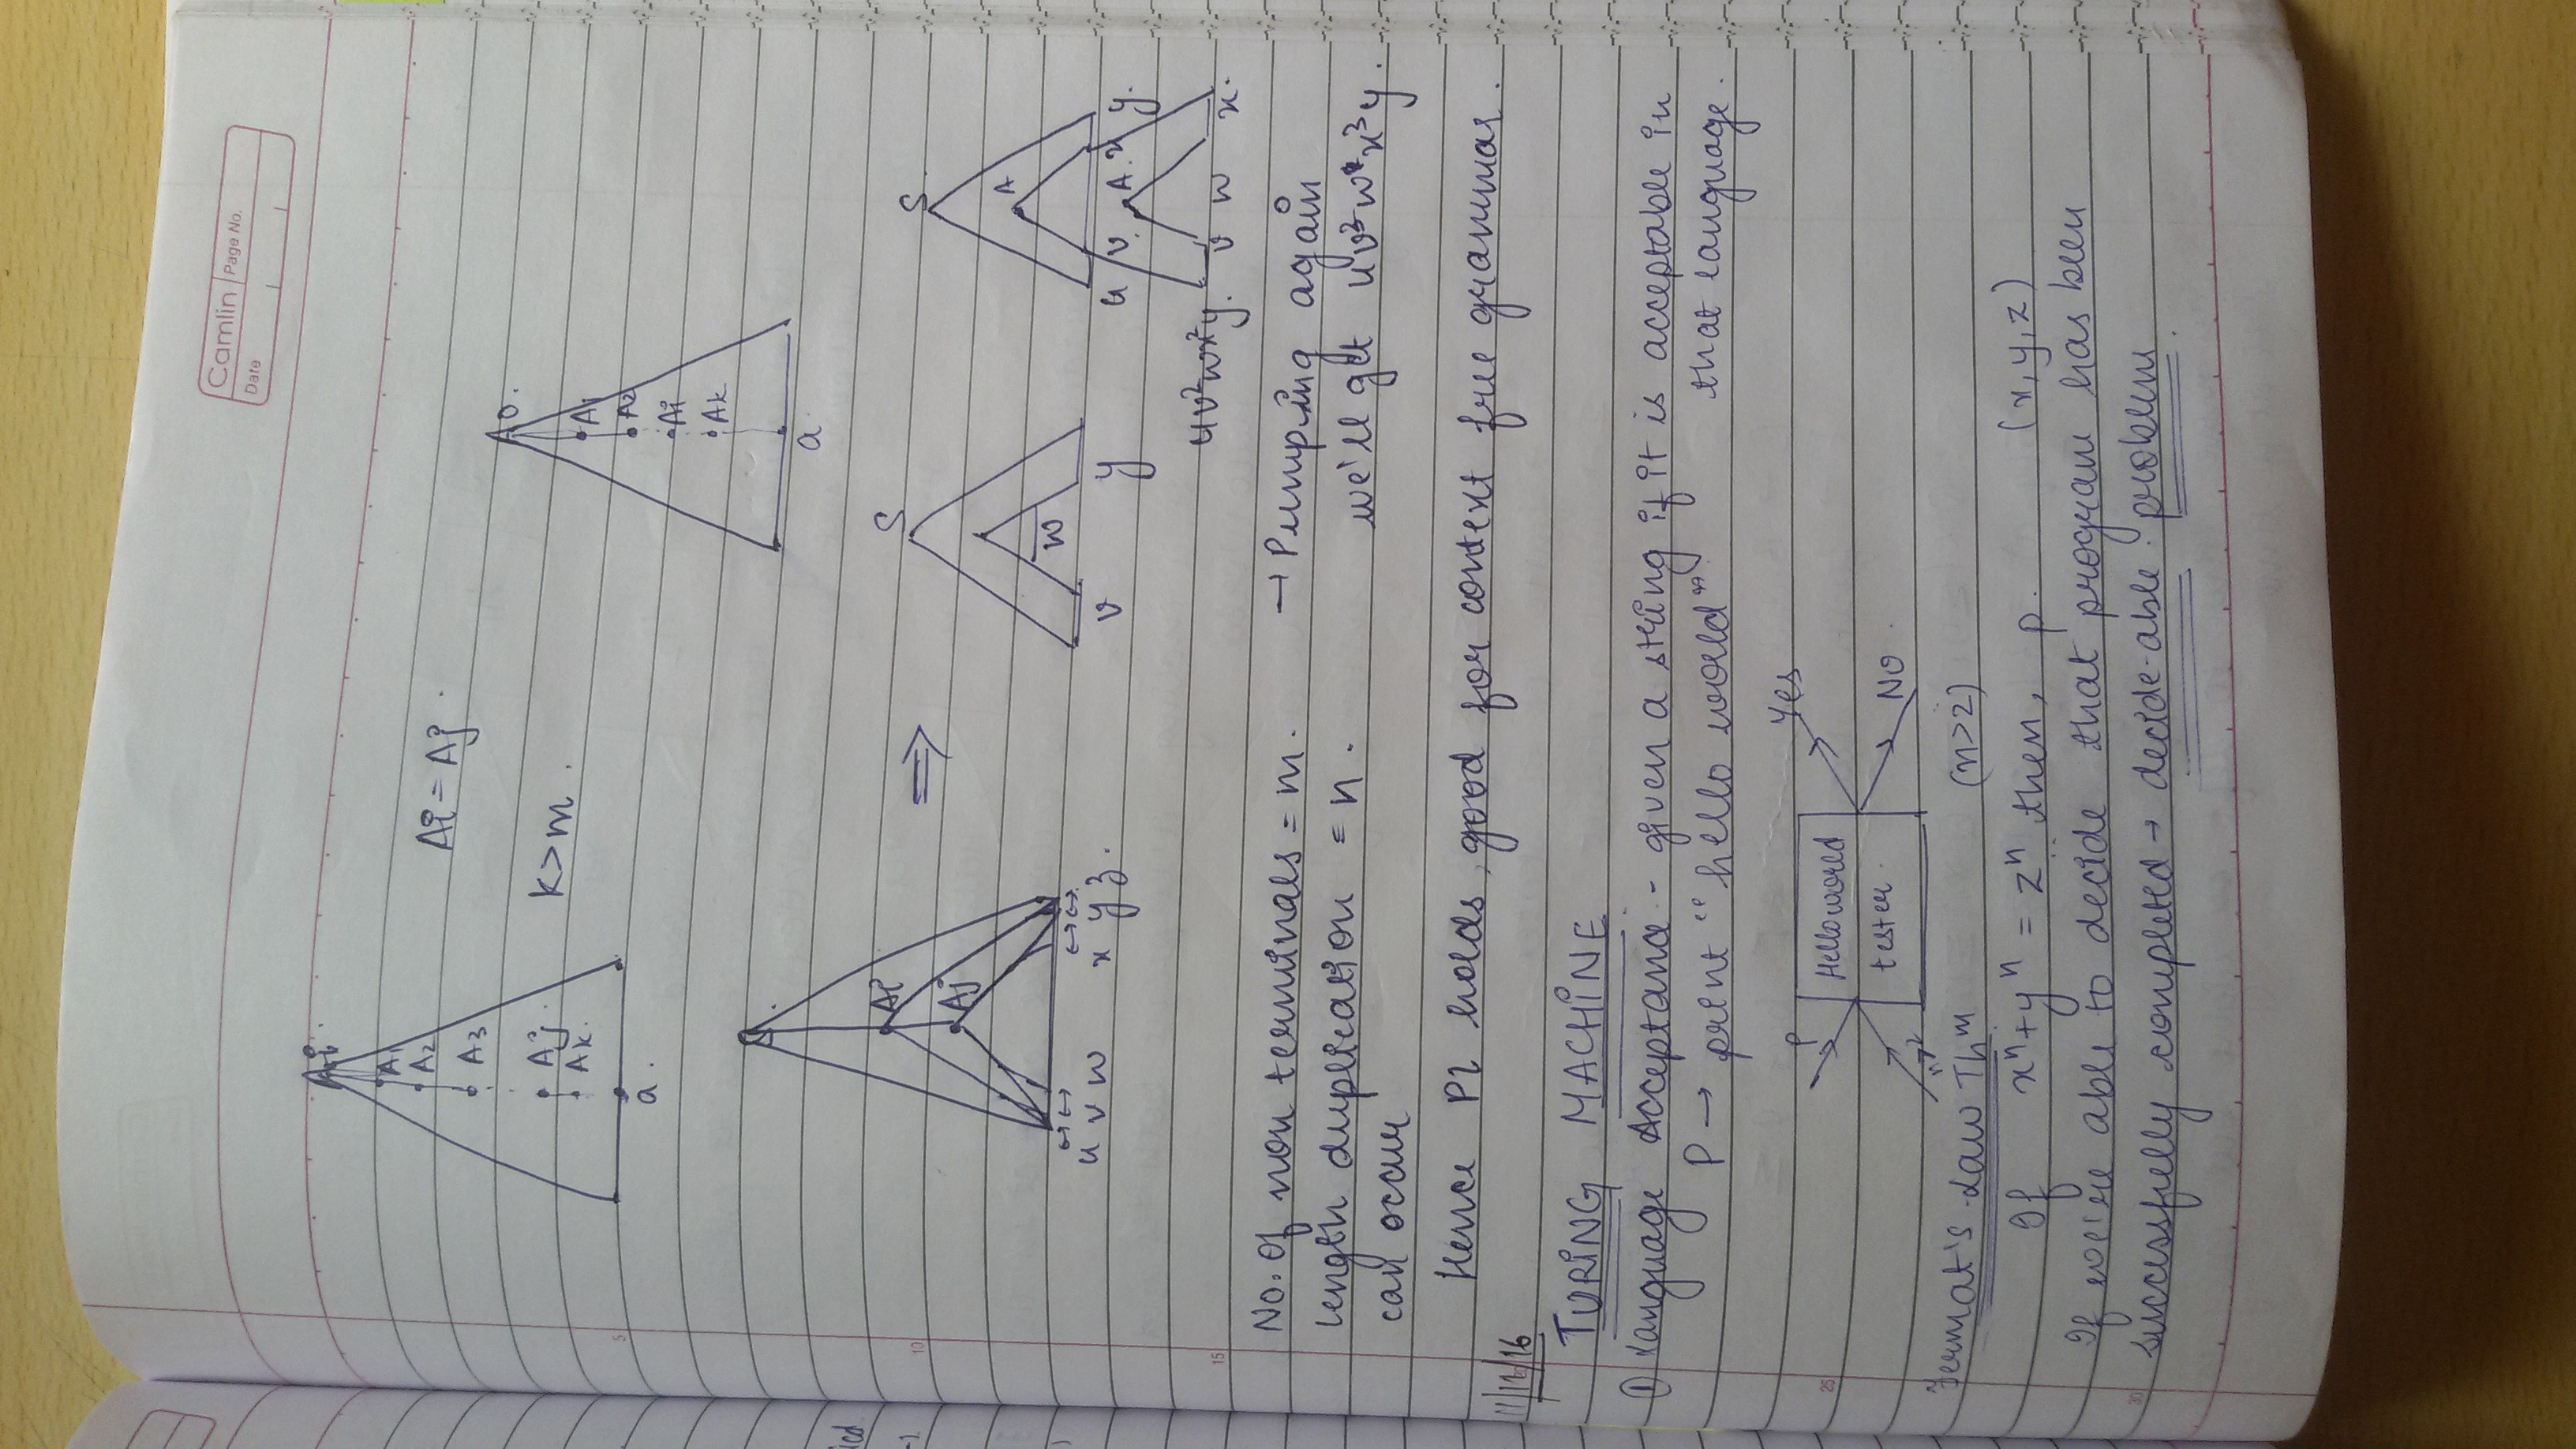 Camlin Page No.
Date
A1
A2
A3
Aj.
Ak.
a.
Ai = Aj.
K>m.
A0.
A1
A2
Ai
Ak
a
S.
Ai
Aj
u v w x y z.
⇒
S
w
v y
S
A
u v. A. x y.
uv²wx²y. v w x.
No. Of non terminals = m. → Pumping again
length duplication = n. we'll get uv³wx³y.
can occur
Hence Pl holds good for context free grammar.
11/11/16
TURING MACHINE
① Language Acceptance - given a string if it is acceptable in
P → print "hello world" that language.
P Yes
Hello world
tester.
NO
Fermat's Law Thm (n>2)
If xⁿ+yⁿ = zⁿ then, p. (x,y,z)
If we're able to decide that program has been
successfully completed → decide-able problem
5
10
15
25
30